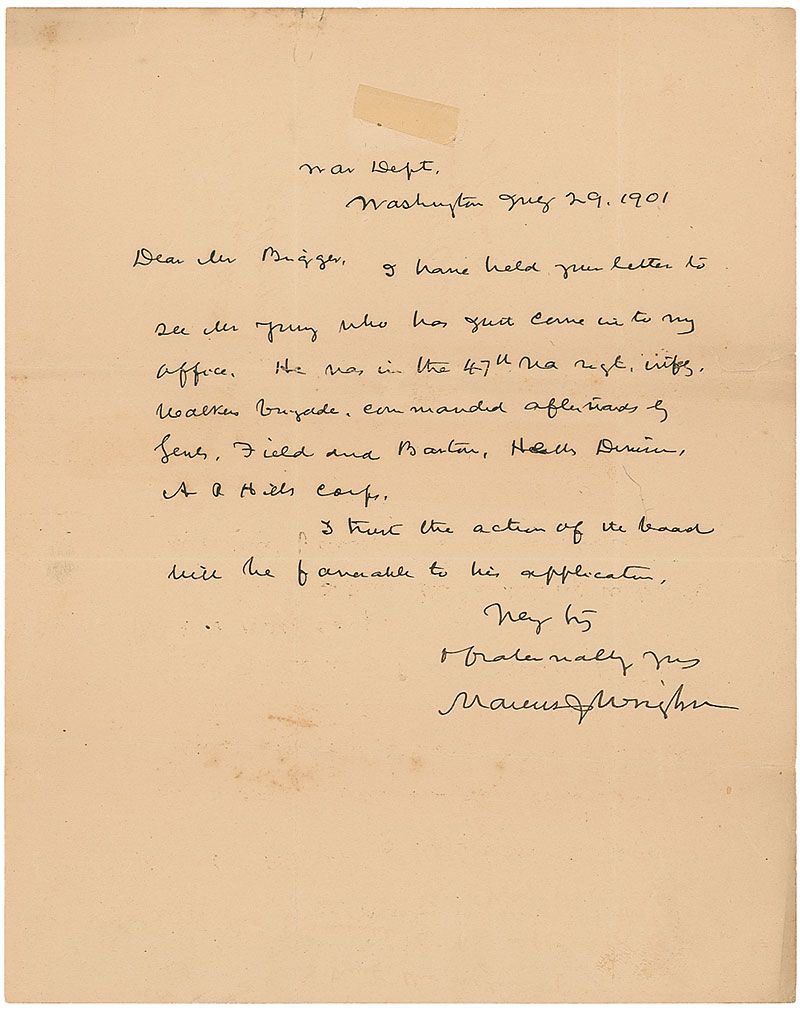 War Dept.
Washington July 29. 1901
Dear Mr Brigger. I have held your letter to
see Mr Young who has just come in to my
office. He was in the 47th Va regt. infty.
Walkers brigade. commanded afterwards by
Genls. Field and Barton, Heths Division,
A P Hills Corps.
I trust the action of the board
will be favorable to his application.
Very try
& fraternally yrs
Marcus J Wright